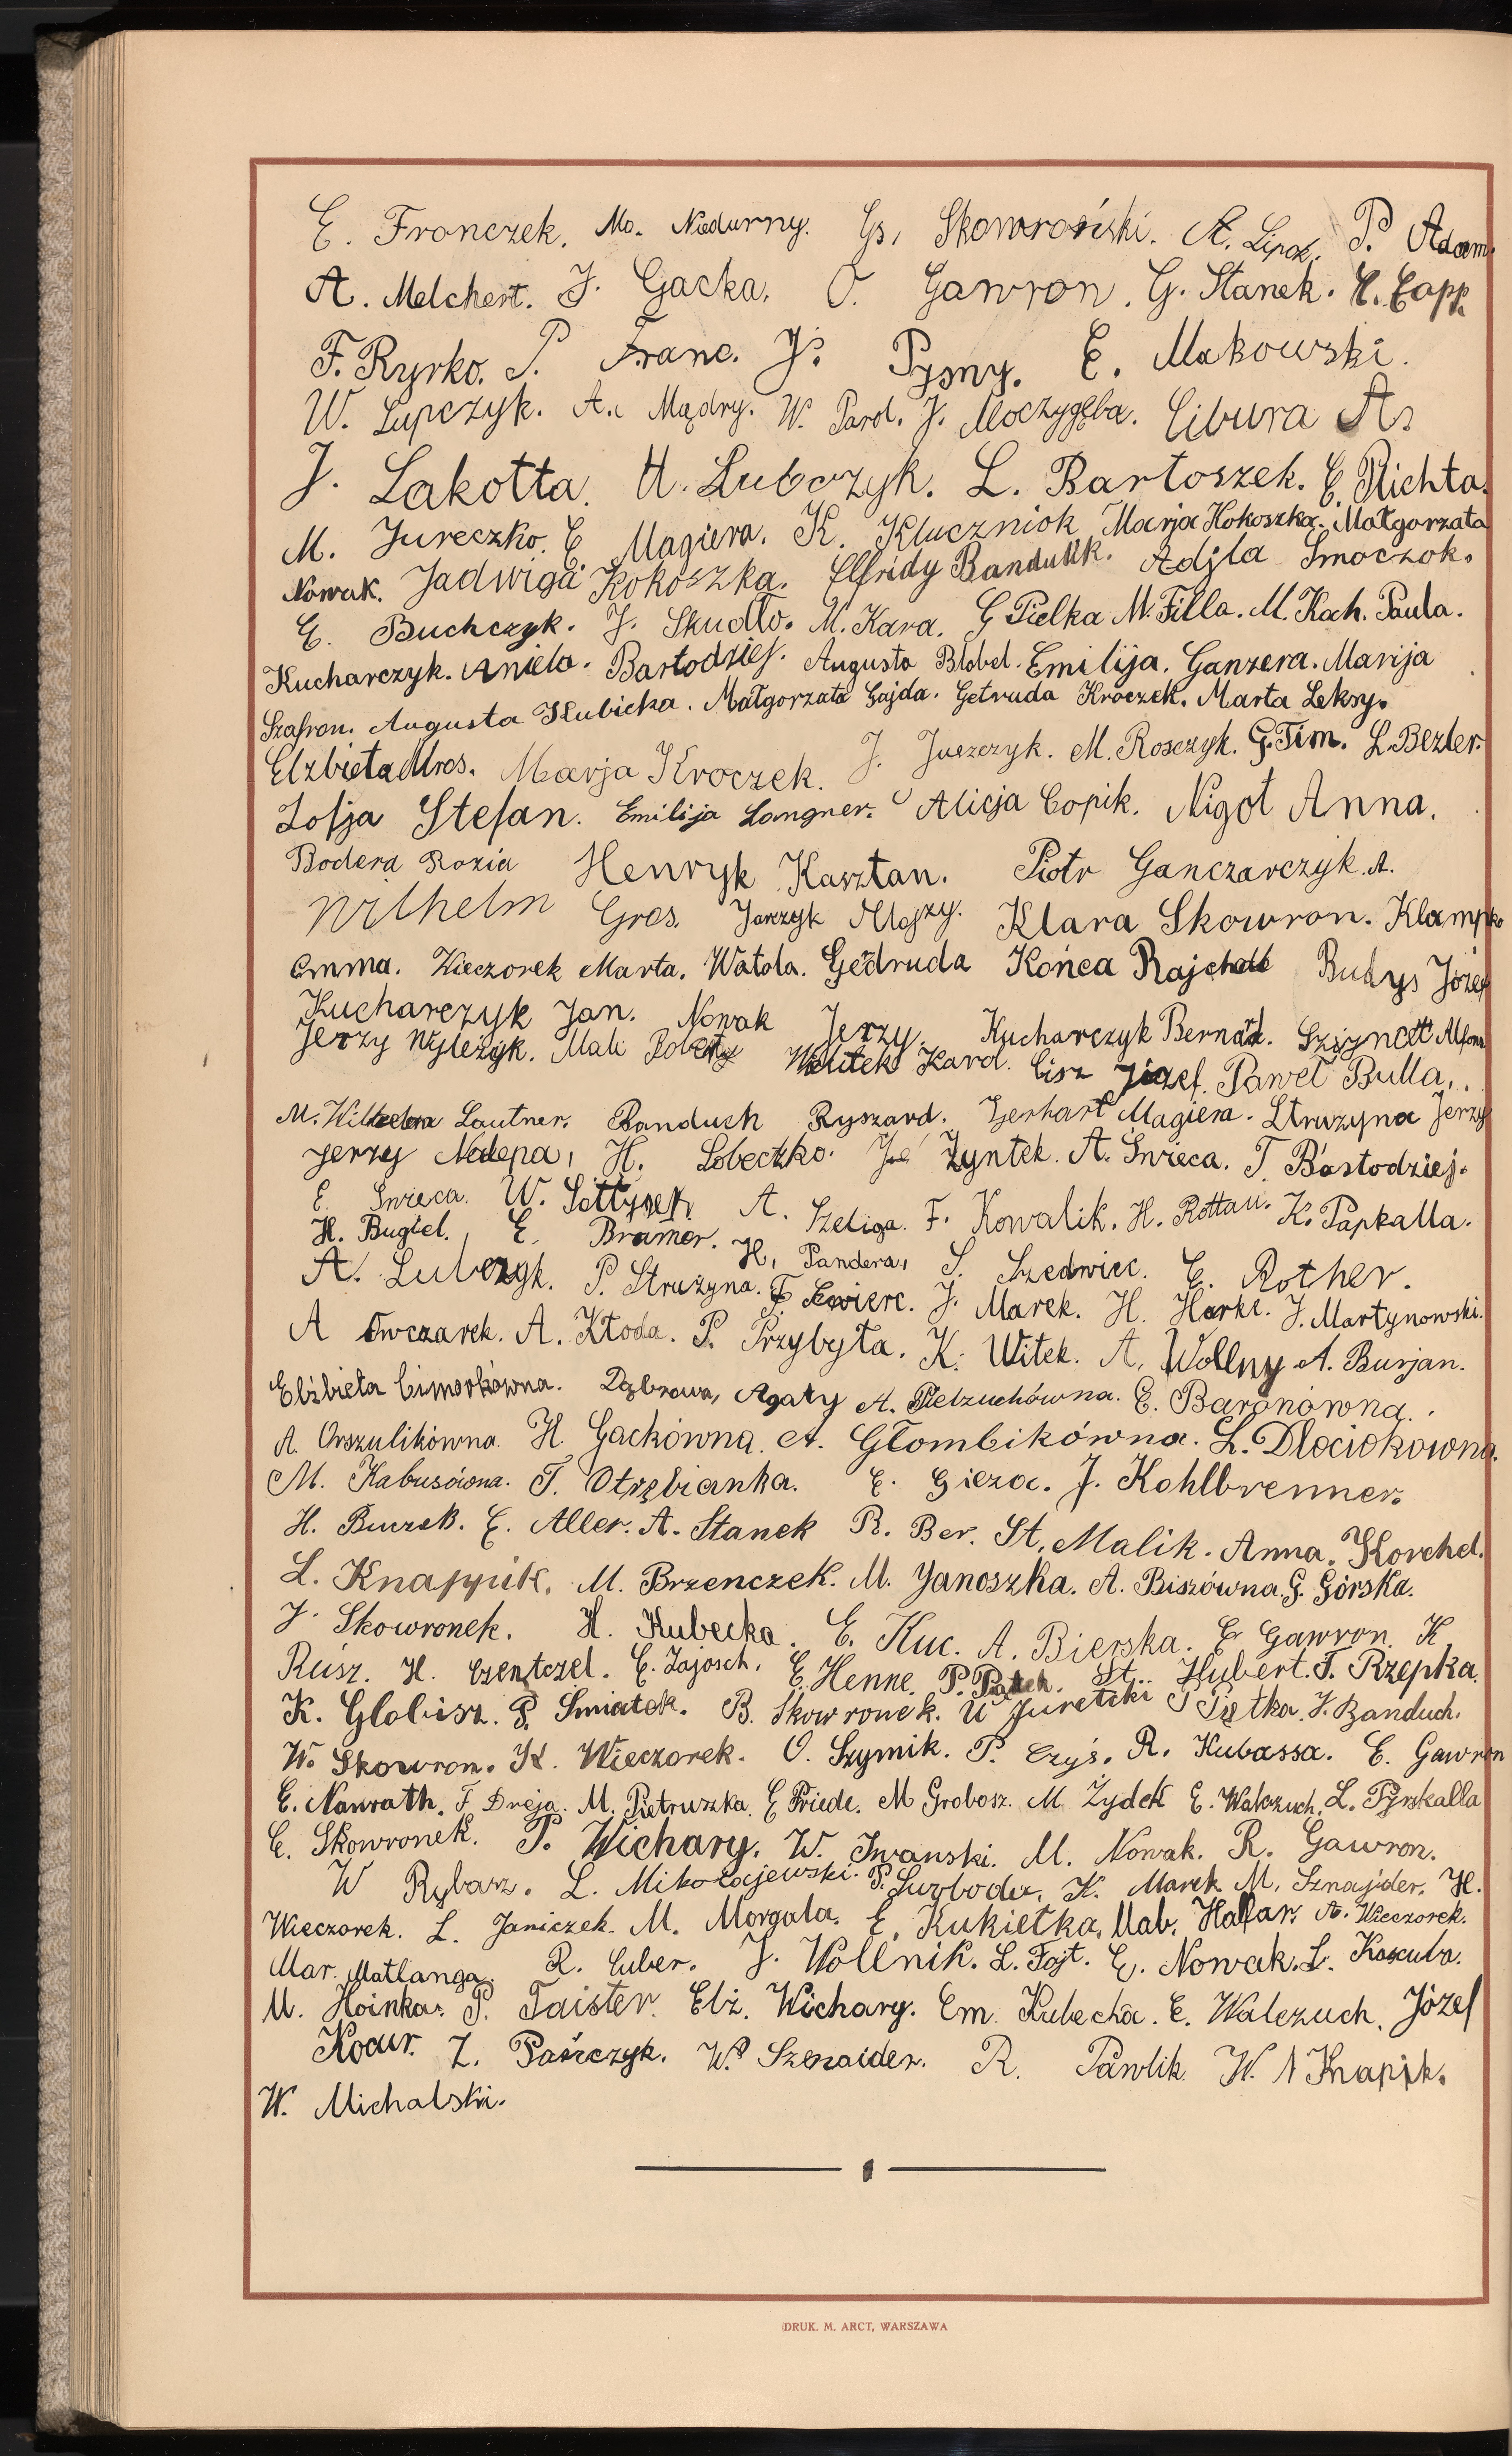 E. Fronczek. Mo. Niedurny. Gs, Skowroński. A. Lipok. P. Adam.
A. Melchert. J. Gacka. O. Gawron. G. Stanek. E. Capp.
F. Ryrko. P. Franc. J. Pysny. E. Makowski.
W. Lupczyk. A. Mądry. W. Pard. J. Moczygęba. Cibura A.
J. Lakotta. A. Lubczyk. L. Bartoszek. E. Richta.
M. Jureczko. E. Magiera. K. Kluczniok Marja Kokoszka. Małgorzata
Nowak. Jadwiga Kokoszka. Elfridy Bandulik. Adjla Smoczok.
E. Buchczyk. J. Skudło. M. Kara. G Pielka M. Filla. M. Kach. Paula.
Kucharczyk. Aniela. Bartodziej. Augusta Blobel. Emilija. Ganzera. Marija
Szafron. Augusta Kubicka. Małgorzata Gajda. Getruda Kroczek. Marta Leksy.
Elzbieta Mros. Marja Kroczek. J. Juszczyk. M. Rosczyk. G. Tim. L. Bezler.
Zofja Stefan. Emilija Langner. Alicja Copik. Nigot Anna.
Bodera Rozia Henryk Kasztan. Piotr Ganczarczyk. A.
Wilhelm Gros. Jarzyk Alojzy. Klara Skowron. Klampko
Emma. Wieczorek Marta. Watola. Gedruda Końca Rajchel Budys Józef
Kucharczyk Jan. Nowak Jerzy. Kucharczyk Bernad. Alfons
Jerzy Wyleżyk. Mali Roberty Witek Karol. Cisz Józef. Paweł Bulla.
M. Lautner. Banduch Ryszard. Gerhart Magiera. Struzyna Jerzy
Jerzy Nalepa, H. Sobeczko. Zyntek. A. Świeca. T. Bartodziej.
E. Świeca. W. Sołtysek A. Szeliga. F. Kowalik. H. Rottau. K. Papkalla.
H. Bugiel. E. Bramor. H. Pandera, S. Szedwiec. E. Rother.
A. Lubczyk. P. Strużyna. F. Ćwierc. J. Marek. H. Harke. J. Martynowski.
A Owczarek. A. Kłoda. P. Przybyła. K. Witek. A. Wollny A. Burjan.
Elżbieta Cimorkówna. Dąbrowa, Agaty A. Pielzuchówna. E. Baronówna.
A. Orszulikówna. H. Gackówna. A. Głombikówna. L. Dlociokówna.
M. Kabusówna. T. Otrębianka. E. Gieza. J. Kohlbrenner.
H. Buczek. E. Aller. A. Stanek R. Ber. St. Malik. Anna. Korchel.
L. Knappik. M. Brzenczek. M. Janoszka. A. Biszówna. G. Górska.
J. Skowronek. H. Kubecka. E. Kuc. A. Bierska. E Gawron. K
Rusz. H. Czentczel. E. Zajosch. E. Henne. P. Piątek. St. Hubert. T. Rzepka.
K. Globisz. P. Smiatek. B. Skowronek. U Juretzki P Piętka. J. Banduch.
W. Skowron. K. Wieczorek. O. Szymik. P. Czyś. R. Kubassa. E. Gawron
E. Nawrath. F Dreja. M. Pietruszka. E Friede. M Grobosz. M Żydek E. Walczuch. L. Pyrskalla
E. Skowronek. P. Wichary. W. Iwanski. M. Nowak. R. Gawron.
W Rybarz. L. Mikołajewski. P. Swoboda. K. Marek M. Sznajder. H.
Wieczorek. L. Janiczek. M. Morgala. E. Kukiełka. Mab. Hafar. A. Wieczorek.
Mar. Matlanga. R. Cuber. J. Wollnik. L. Fojt. E. Nowak. L. Koscula.
M. Hoinka. P. Taister. Elż. Wichary. Em. Kubecka. E. Walczuch. Józef
Kocur. Z. Paśiczyk. W. Szenaider. R. Pawlik. W. Knapik.
W. Michalski.
DRUK. M. ARCT, WARSZAWA